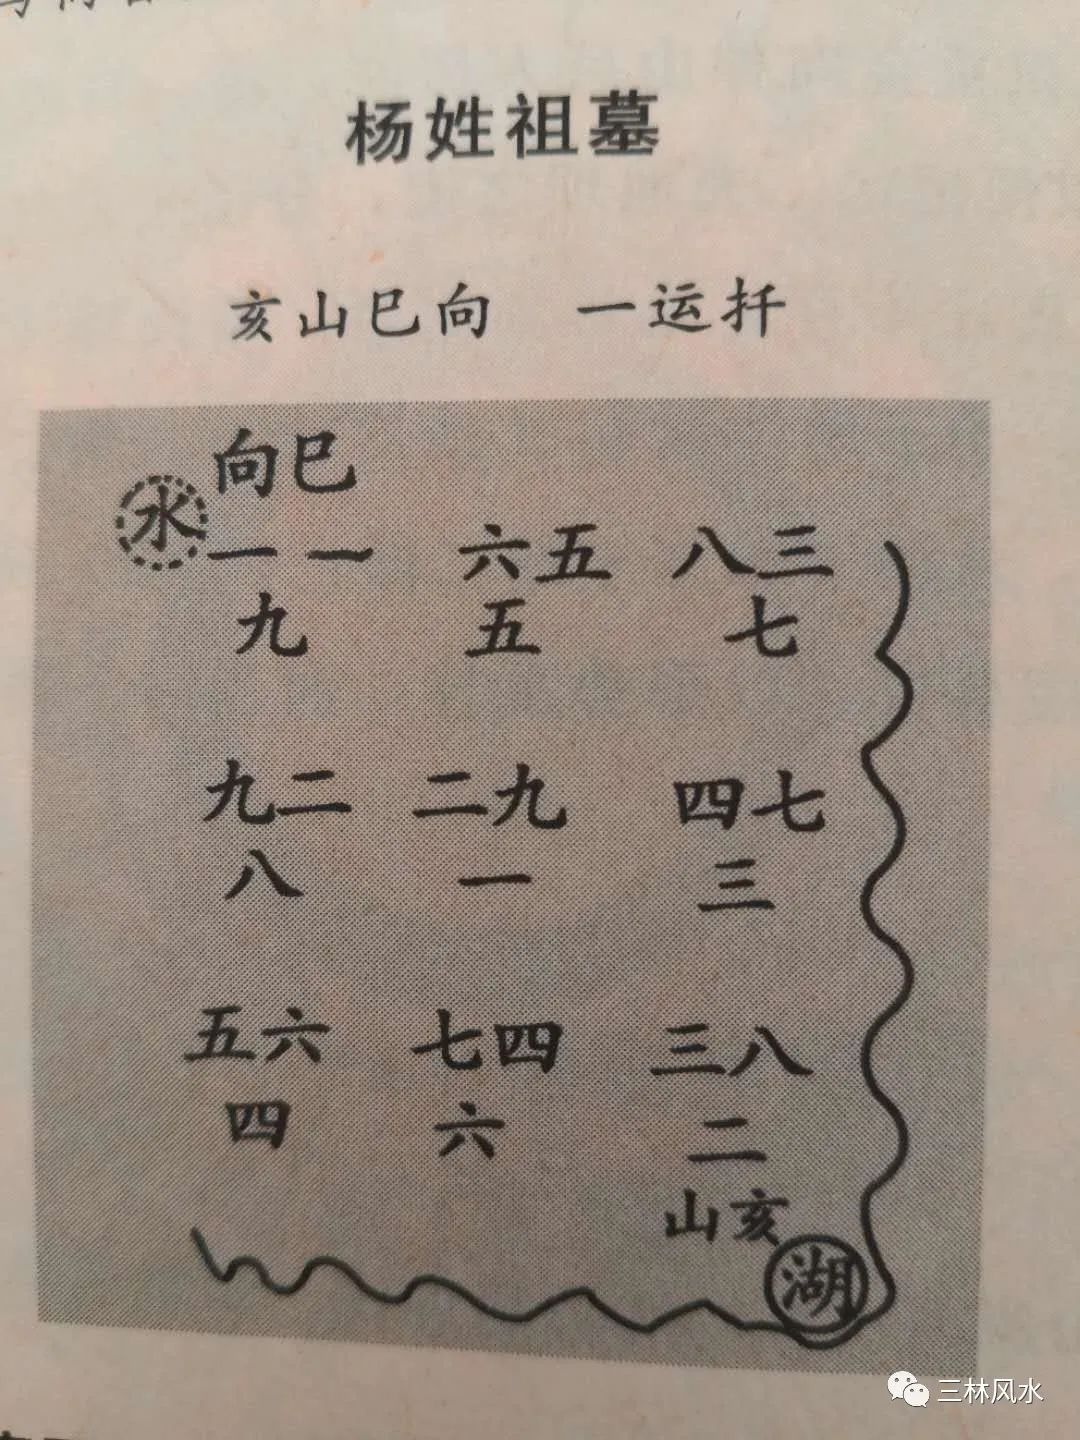 杨姓祖墓
亥山巳向 一运扦
向巳
水
一一 六五 八三
九 五 七
九二 二九 四七
八 一 三
五六 七四 三八
四 六 二
山亥
湖
三林风水